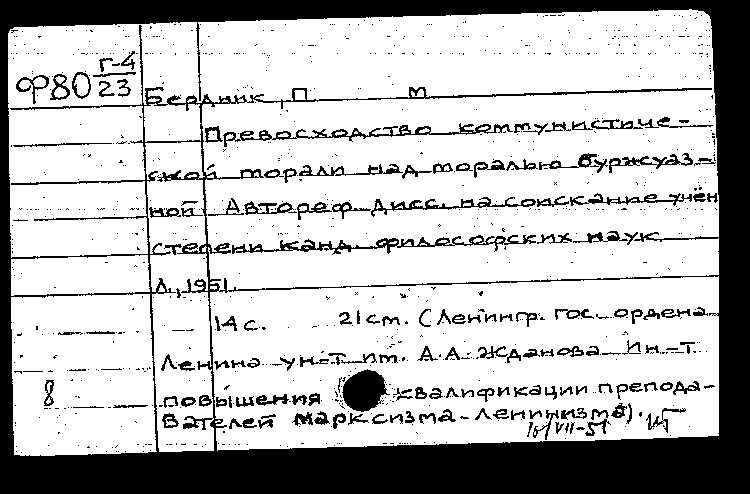 Ф80 Г-4/23
Бердник, П М
Превосходство коммунистиче-
ской морали над моралью буржуаз-
ной Автореф. дисс. на соискание учён
степени канд. философских наук
Л., 1951.
14 с. 21 см. (Ленингр. гос. ордена
Ленина ун-т им. А.А. Жданова Ин-т
повышения квалификации препода-
вателей марксизма-ленинизма).
8
10/VII-51